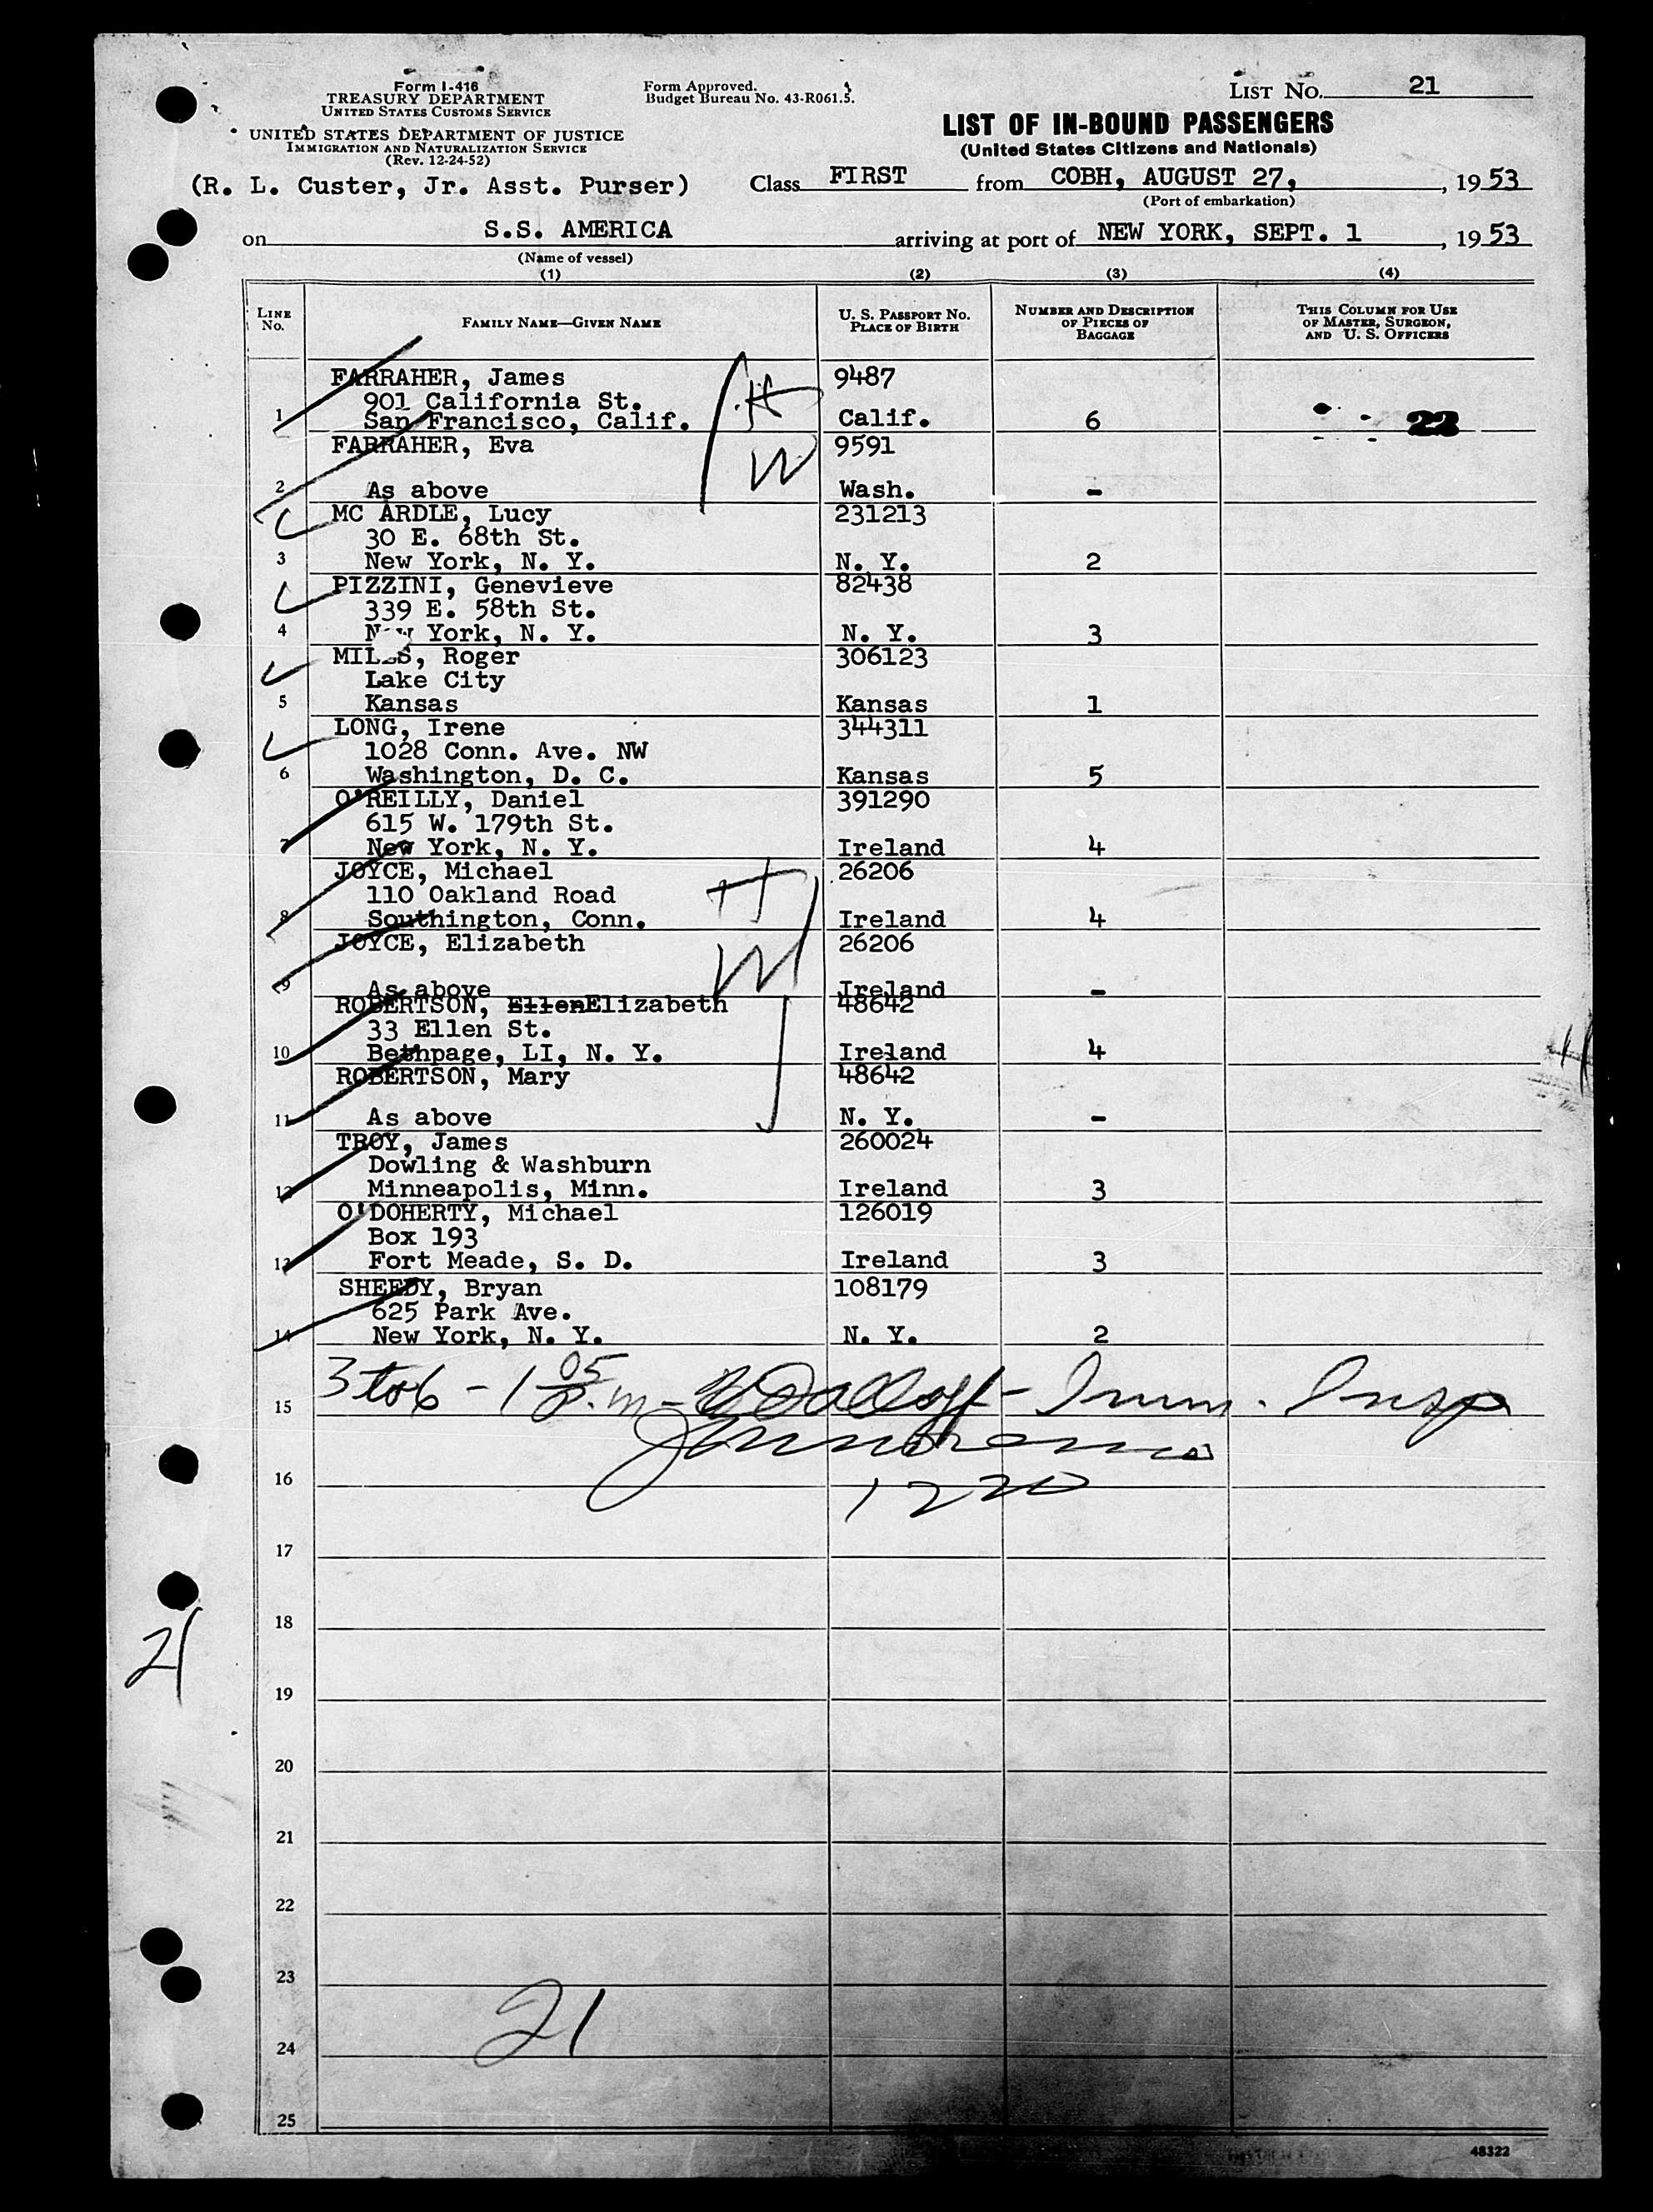 Form I-416
TREASURY DEPARTMENT
UNITED STATES CUSTOMS SERVICE
UNITED STATES DEPARTMENT OF JUSTICE
IMMIGRATION AND NATURALIZATION SERVICE
(Rev. 12-24-52)
Form Approved.
Budget Bureau No. 43-R061.5.
LIST NO. 21
LIST OF IN-BOUND PASSENGERS
(United States Citizens and Nationals)
(R. L. Custer, Jr. Asst. Purser) Class FIRST from COBH, AUGUST 27, , 1953
(Port of embarkation)
on S.S. AMERICA arriving at port of NEW YORK, SEPT. 1 , 1953
(Name of vessel)
(1) (2) (3) (4)
LINE NO. FAMILY NAME—GIVEN NAME U. S. PASSPORT NO. PLACE OF BIRTH NUMBER AND DESCRIPTION OF PIECES OF BAGGAGE THIS COLUMN FOR USE OF MASTER, SURGEON, AND U. S. OFFICERS
FARRAHER, James H 9487
901 California St.
1 San Francisco, Calif. Calif. 6 22
FARRAHER, Eva W 9591
2 As above Wash. -
MC ARDLE, Lucy 231213
30 E. 68th St.
3 New York, N. Y. N. Y. 2
PIZZINI, Genevieve 82438
339 E. 58th St.
4 New York, N. Y. N. Y. 3
MILES, Roger 306123
Lake City
5 Kansas Kansas 1
LONG, Irene 344311
1028 Conn. Ave. NW
6 Washington, D. C. Kansas 5
O'REILLY, Daniel 391290
615 W. 179th St.
7 New York, N. Y. Ireland 4
JOYCE, Michael H 26206
110 Oakland Road
8 Southington, Conn. Ireland 4
JOYCE, Elizabeth W 26206
9 As above Ireland -
ROBERTSON, Ellen Elizabeth 48642
33 Ellen St.
10 Bethpage, LI, N. Y. Ireland 4
ROBERTSON, Mary 48642
11 As above N. Y. -
TROY, James 260024
Dowling & Washburn
12 Minneapolis, Minn. Ireland 3
O'DOHERTY, Michael 126019
Box 193
13 Fort Meade, S. D. Ireland 3
SHEEDY, Bryan 108179
625 Park Ave.
14 New York, N. Y. N. Y. 2
3 to 6 - 1 05 P.m - Imm. Insp
15
16
1220
17
18
21
19
20
21
22
23
21
24
25
48322